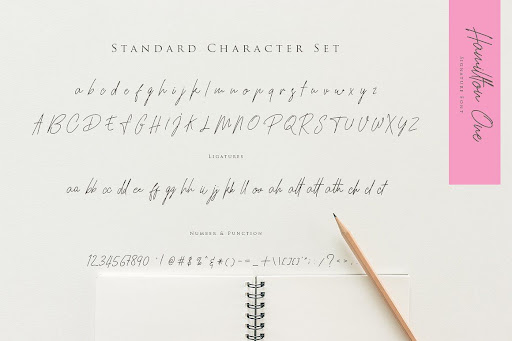 Standard Character Set
a b c d e f g h i j k l m n o p q r s t u v w x y z
A B C D E F G H I J K L M N O P Q R S T U V W X Y Z
Ligatures
aa bb cc dd ee ff gg hh ii jj kk ll oo ah alt att ath ch cl ct
Number & Function
1234567890
Hamilton One
Signature Font